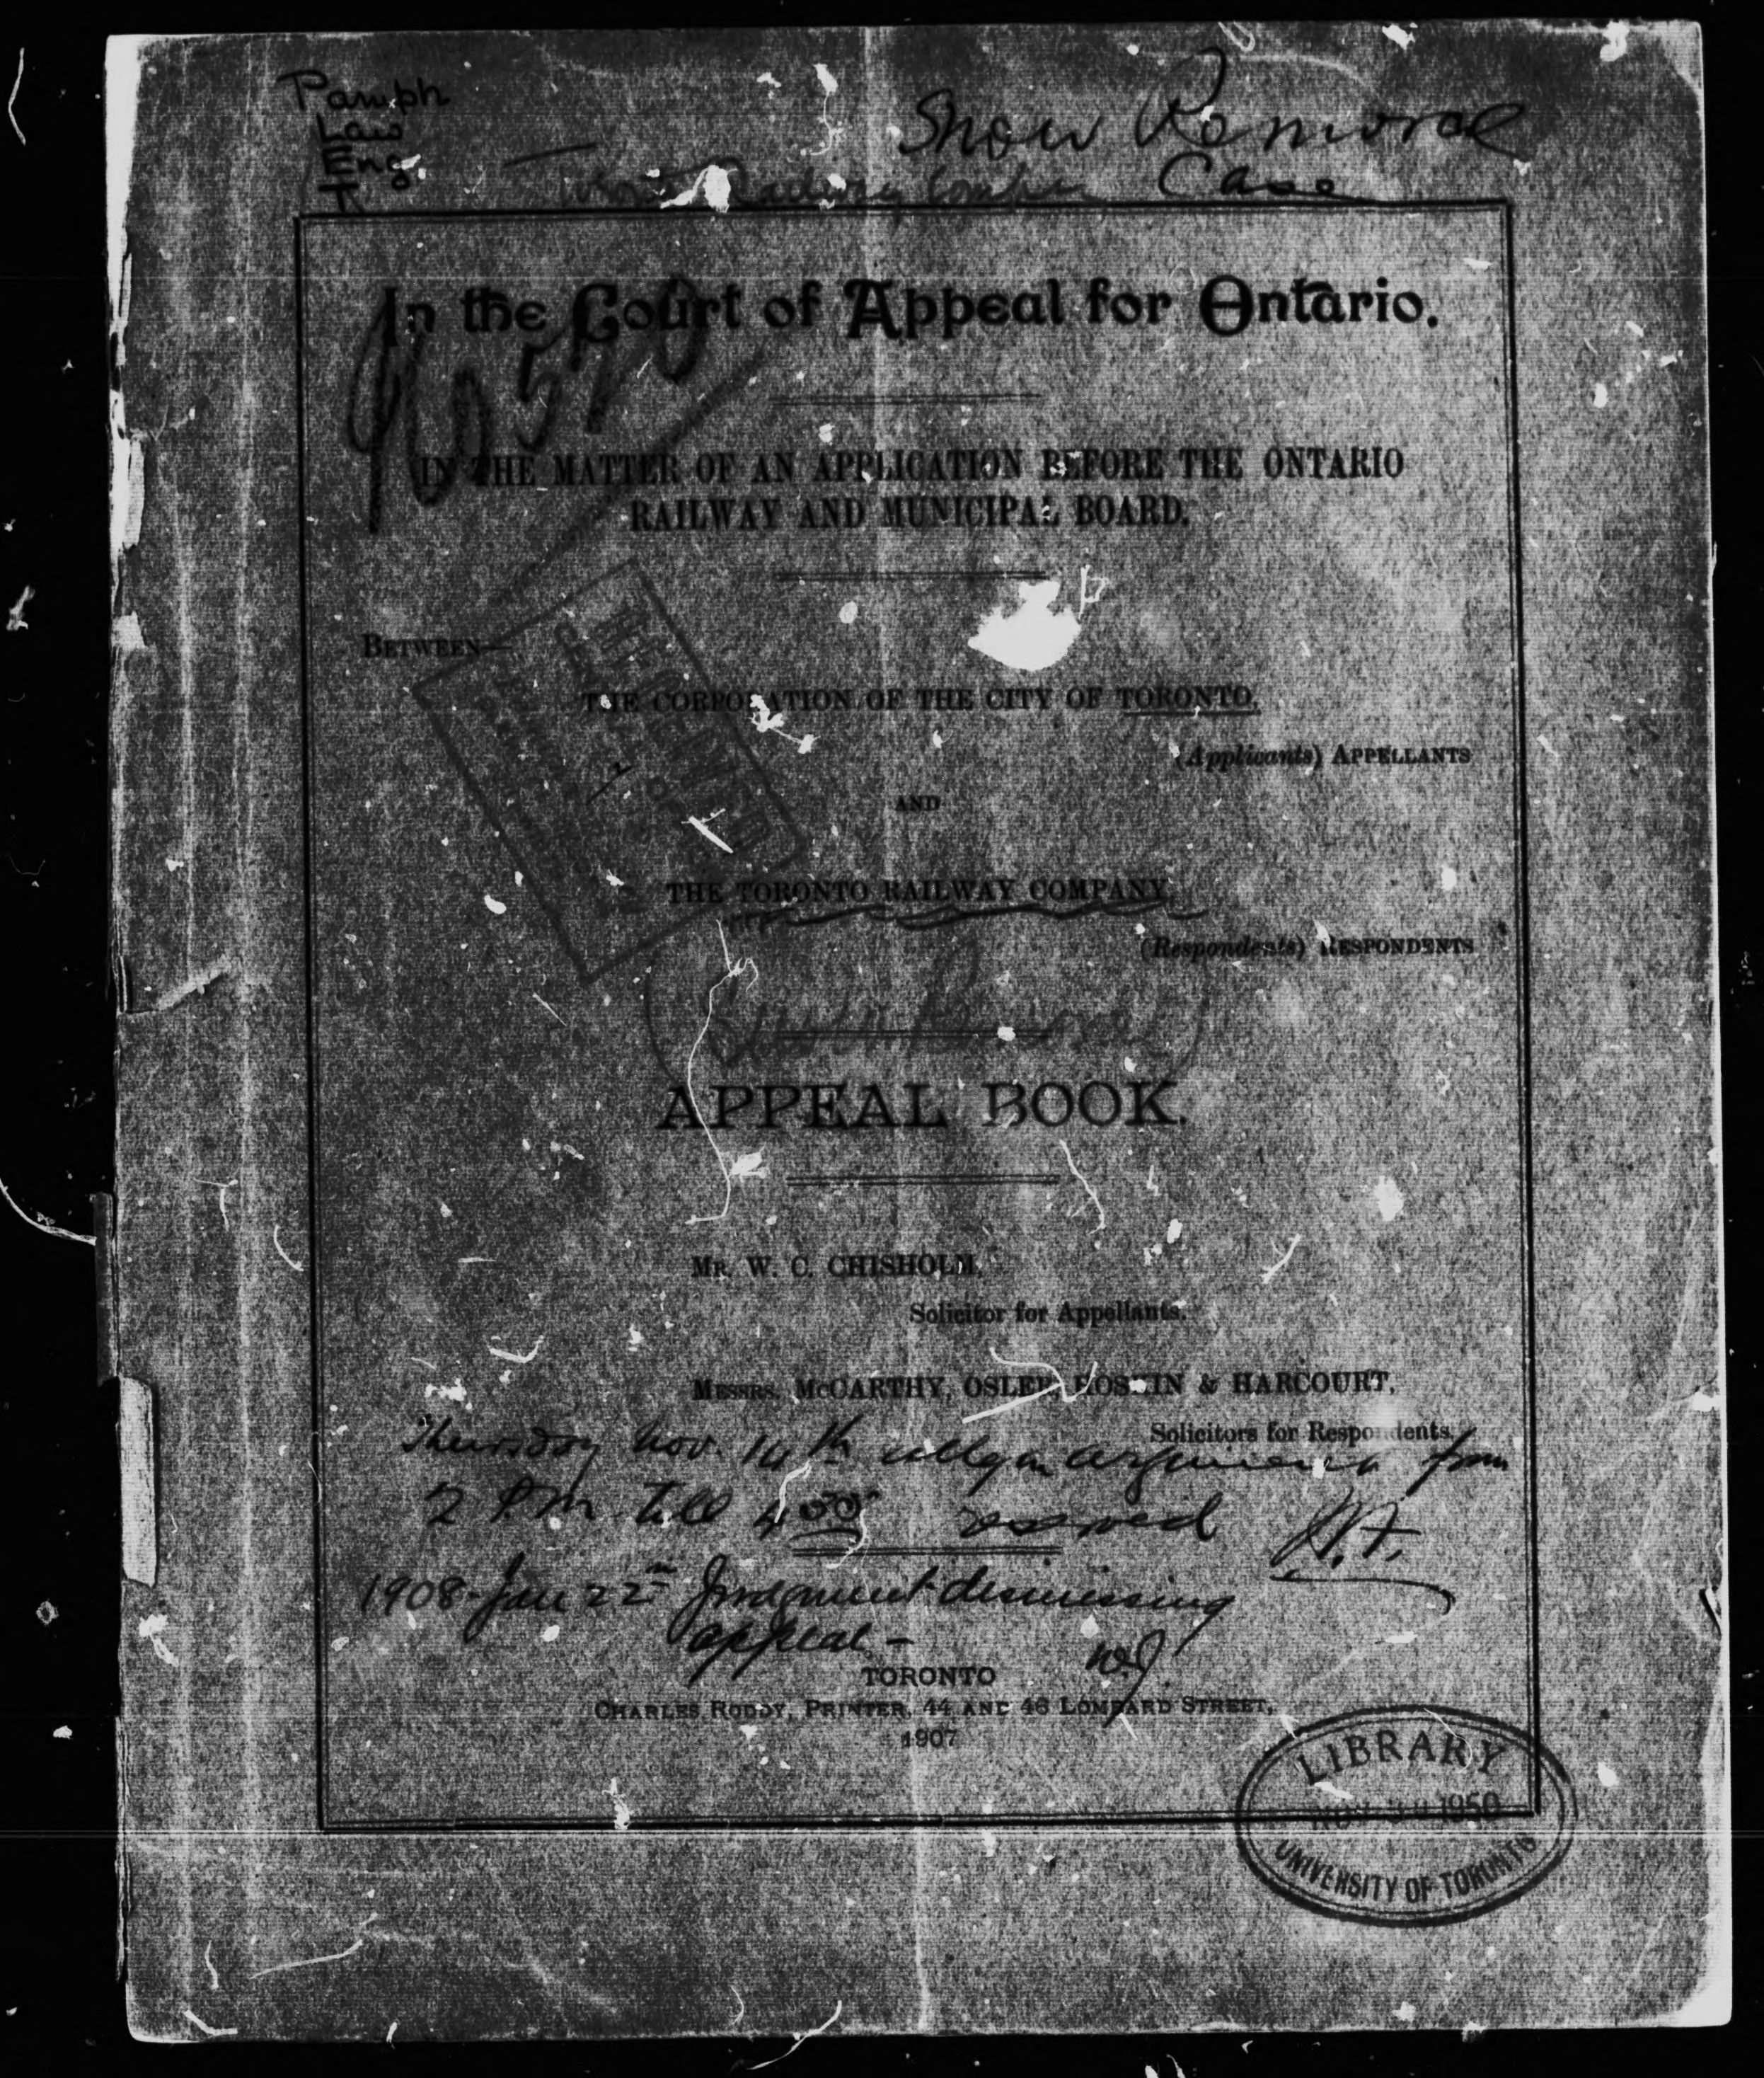 Pamph
Law
Eng
T
Snow Removal
Case
In the Court of Appeal for Ontario.
IN THE MATTER OF AN APPLICATION BEFORE THE ONTARIO
RAILWAY AND MUNICIPAL BOARD.
BETWEEN—
THE CORPORATION OF THE CITY OF TORONTO,
(Applicants) APPELLANTS
AND
THE TORONTO RAILWAY COMPANY,
(Respondents) RESPONDENTS
Snow Removal
APPEAL BOOK.
MR. W. C. CHISHOLM,
Solicitor for Appellants.
MESSRS. MCCARTHY, OSLER, HOSKIN & HARCOURT,
Solicitors for Respondents.
Thursday Nov. 14th argument from
2 P.M. till 4 00
1908 - Jan 22nd Judgment dismissing
appeal -
TORONTO
CHARLES RODDY, PRINTER, 44 AND 46 LOMBARD STREET,
1907
LIBRARY
1950
UNIVERSITY OF TORONTO